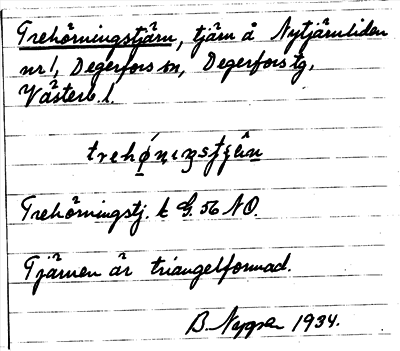 Trehörningstjärn, tjärn å Nytjärnliden
nr 1, Degerfors sn, Degerfors tg,
Västerb. l.
Trehörningstj. k G. 56 NO.
Tjärnen är triangelformad.
B. Nygren 1934.